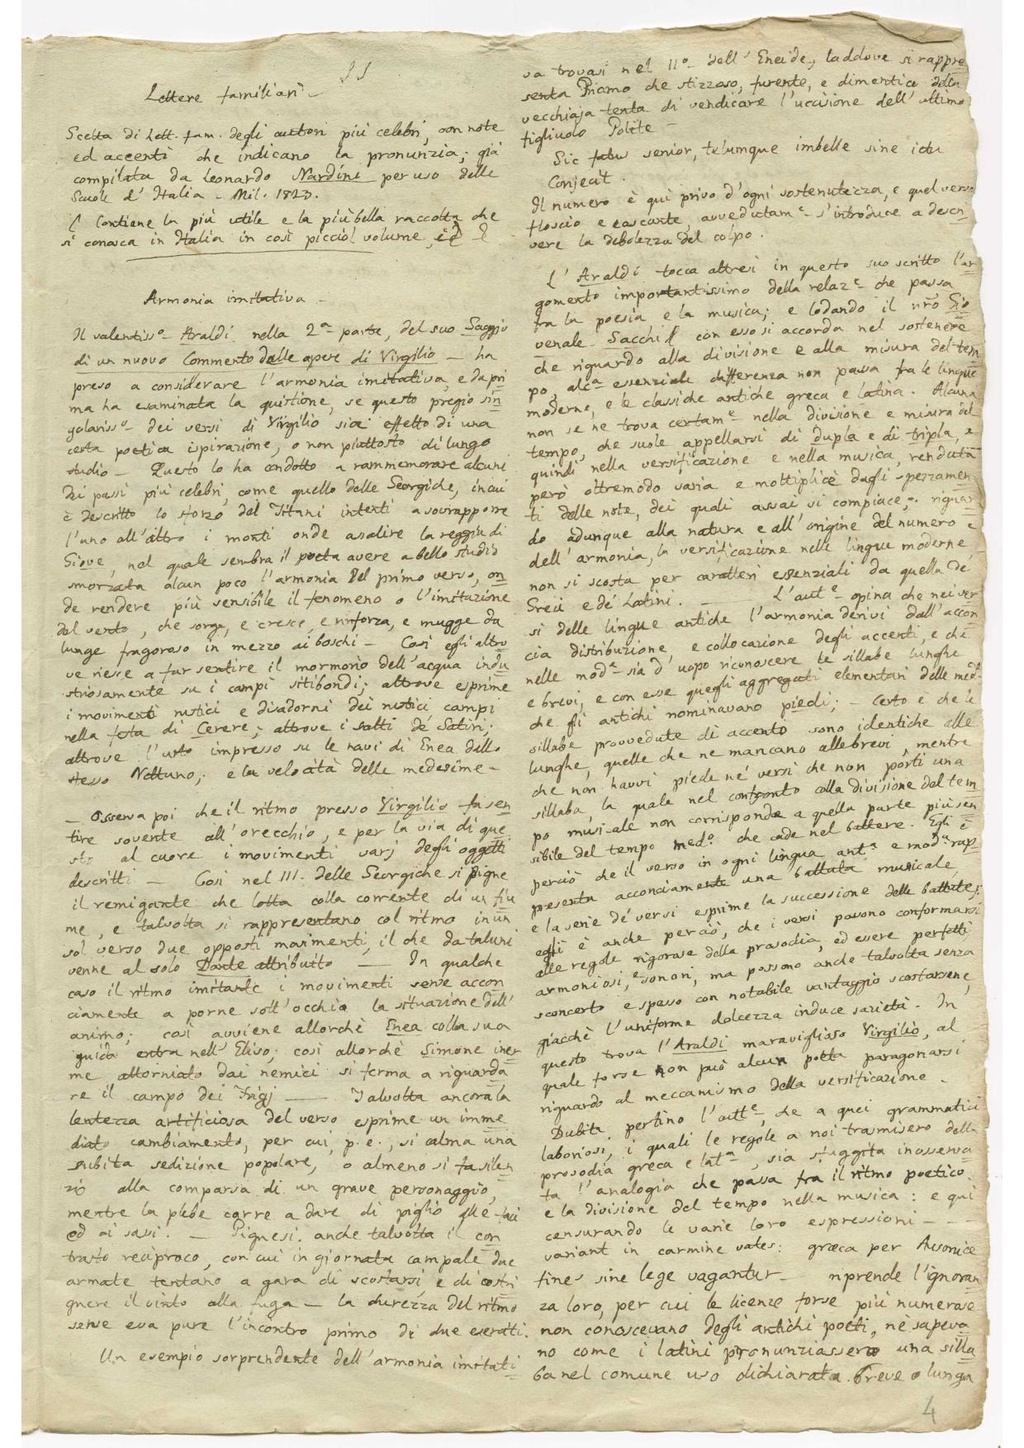 Lettere familiari —
Scelta di Lett. fam. degli autori più celebri, con note
ed accenti che indicano la pronunzia; già
compilata da Leonardo Nardini per uso delle
Scuole d'Italia — Mil. 1823.
Contiene la più utile e la più bella raccolta che
si conosca in Italia in così picciol volume,
Armonia imitativa —
Il valentiss.o Araldi, nella 2.a parte, del suo Saggio
di un nuovo Commento delle opere di Virgilio — ha
preso a considerare l'armonia imitativa, e da pri
ma ha esaminata la quistione, se questo pregio sin
golariss.o dei versi di Virgilio sia effetto di una
certa poetica ispirazione, o non piuttosto di lungo
studio — Questo lo ha condotto a rammemorare alcuni
dei passi più celebri, come quello delle Georgiche, in cui
è descritto lo sforzo dei Titani intenti a sovrapporre
l'uno all'altro i monti onde assalire la reggia di
Giove, nel quale sembra il poeta avere a bello studio
smorzata alcun poco l'armonia del primo verso, on
de rendere più sensibile il fenomeno o l'imitazione
del vento, che sorge, e cresce, e rinforza, e mugge da
lunge fragoroso in mezzo ai boschi — Così egli altro
ve riesce a far sentire il mormorio dell'acqua indu
striosamente su i campi sitibondi; altrove esprime
i movimenti rustici e disadorni dei rustici campi
nella festa di Cerere; altrove i salti de' Satiri;
altrove l'urto impresso su le navi di Enea dallo
stesso Nettuno; e la velocità delle medesime —
— Osserva poi che il ritmo presso Virgilio fa sen
tire sovente all'orecchio, e per la via di que
sto al cuore i movimenti varj degli oggetti
descritti — Così nel III. delle Georgiche si pigne
il remigante che lotta colla corrente di un fiu
me, e talvolta si rappresentano col ritmo in un
sol verso due opposti movimenti, il che da taluni
venne al solo Dante attribuito — In qualche
caso il ritmo imitante i movimenti serve accon
ciamente a porne sott'occhio la situazione dell'
animo; così avviene allorchè Enea colla sua
guida entra nell'Eliso; così allorchè Sinone iner
me attorniato dai nemici si ferma a riguarda
re il campo dei Frigj — Talvolta ancora la
lentezza artificiosa del verso esprime un imme
diato cambiamento, per cui, p. e., si calma una
subita sedizione popolare, o almeno si fa silen
zio alla comparsa di un grave personaggio,
mentre la plebe corre a dare di piglio alle faci
ed ai sassi. — Pignesi anche talvolta il con
trasto reciproco, con cui in giornata campale due
armate tentano a gara di scostarsi e di costri
gnere il vinto alla fuga — la durezza del ritmo
serve eva pure l'incontro primo di due eserciti.
Un esempio sorprendente dell'armonia imitati
va trovasi nel II.o dell'Eneide, laddove si rappre
senta Priamo che stizzoso, furente, e dimentico della
vecchiaja tenta di vendicare l'uccisione dell'ultimo
figliuolo Polite —
Sic fatus senior, telumque imbelle sine ictu
Conjecit.
Il numero è qui privo d'ogni sostenutezza, e quel verso
floscio e cascante avvedutam.e s'introduce a descri
vere la debolezza del colpo.
L'Araldi tocca altresì in questo suo scritto l'ar
gomento importantissimo della relaz.e che passa
fra la poesia e la musica; e lodando il nro Gio
venale Sacchi con esso si accorda nel sostenere
che riguardo alla divisione e alla misura del tem
po, alc.a essenziale differenza non passa fra le lingue
moderne, e le classiche antiche greca e latina. Alcuna
non se ne trova certam.e nella divisione e misura del
tempo, che suole appellarsi di dupla e di tripla, e
quindi nella versificazione e nella musica, renduta
però oltremodo varia e moltiplice dagli spezzamen
ti delle note, dei quali assai si compiace; riguar
do adunque alla natura e all'origine del numero e
dell'armonia, la versificazione nelle lingue moderne,
non si scosta per caratteri essenziali da quella de'
Greci e de' Latini. — L'aut.e opina che nei ver
si delle lingue antiche l'armonia derivi dall'accon
cia distribuzione, e collocazione degli accenti, e che
nelle mod.e sia d'uopo riconoscere le sillabe lunghe
e brevi, e con esse quegli aggregati elementari delle med.e
che gli antichi nominavano piedi; — Certo è che le
sillabe provvedute di accento sono identiche alle
lunghe, quelle che ne mancano alle brevi, mentre
che non havvi piede nè versi che non porti una
sillaba, la quale nel confronto colla divisione del tem
po musicale non corrisponda a quella parte più sen
sibile del tempo med.o che cade nel battere. Egli è
perciò che il verso in ogni lingua ant.a e mod.a rap
presenta acconciamente una battuta musicale,
e la serie de' versi esprime la successione delle battute;
egli è anche perciò, che i versi possono conformarsi
alle regole rigorose della prosodia, ed essere perfetti
armoniosi, e sonori, ma possono anche talvolta senza
sconcerto e spesso con notabile vantaggio scostarsene,
giacchè l'uniforme dolcezza induce sazietà. In
questo trova l'Araldi maraviglioso Virgilio, al
quale forse non può alcun poeta paragonarsi
riguardo al meccanismo della versificazione.
Dubita pertino l'aut.e, che a quei grammatici
laboriosi, i quali le regole a noi trasmisero della
prosodia greca e lat.a, sia sfuggita inosserva
ta l'analogia che passa fra il ritmo poetico
e la divisione del tempo nella musica: e qui
censurando le varie loro espressioni — —
variant in carmine vates: græca per Ausoniæ
fines sine lege vagantur — riprende l'ignoran
za loro, per cui le licenze forse più numerose
non conoscevano degli antichi poeti, nè sapeva
no come i latini pronunziassero una silla
ba nel comune uso dichiarata breve o lunga
4